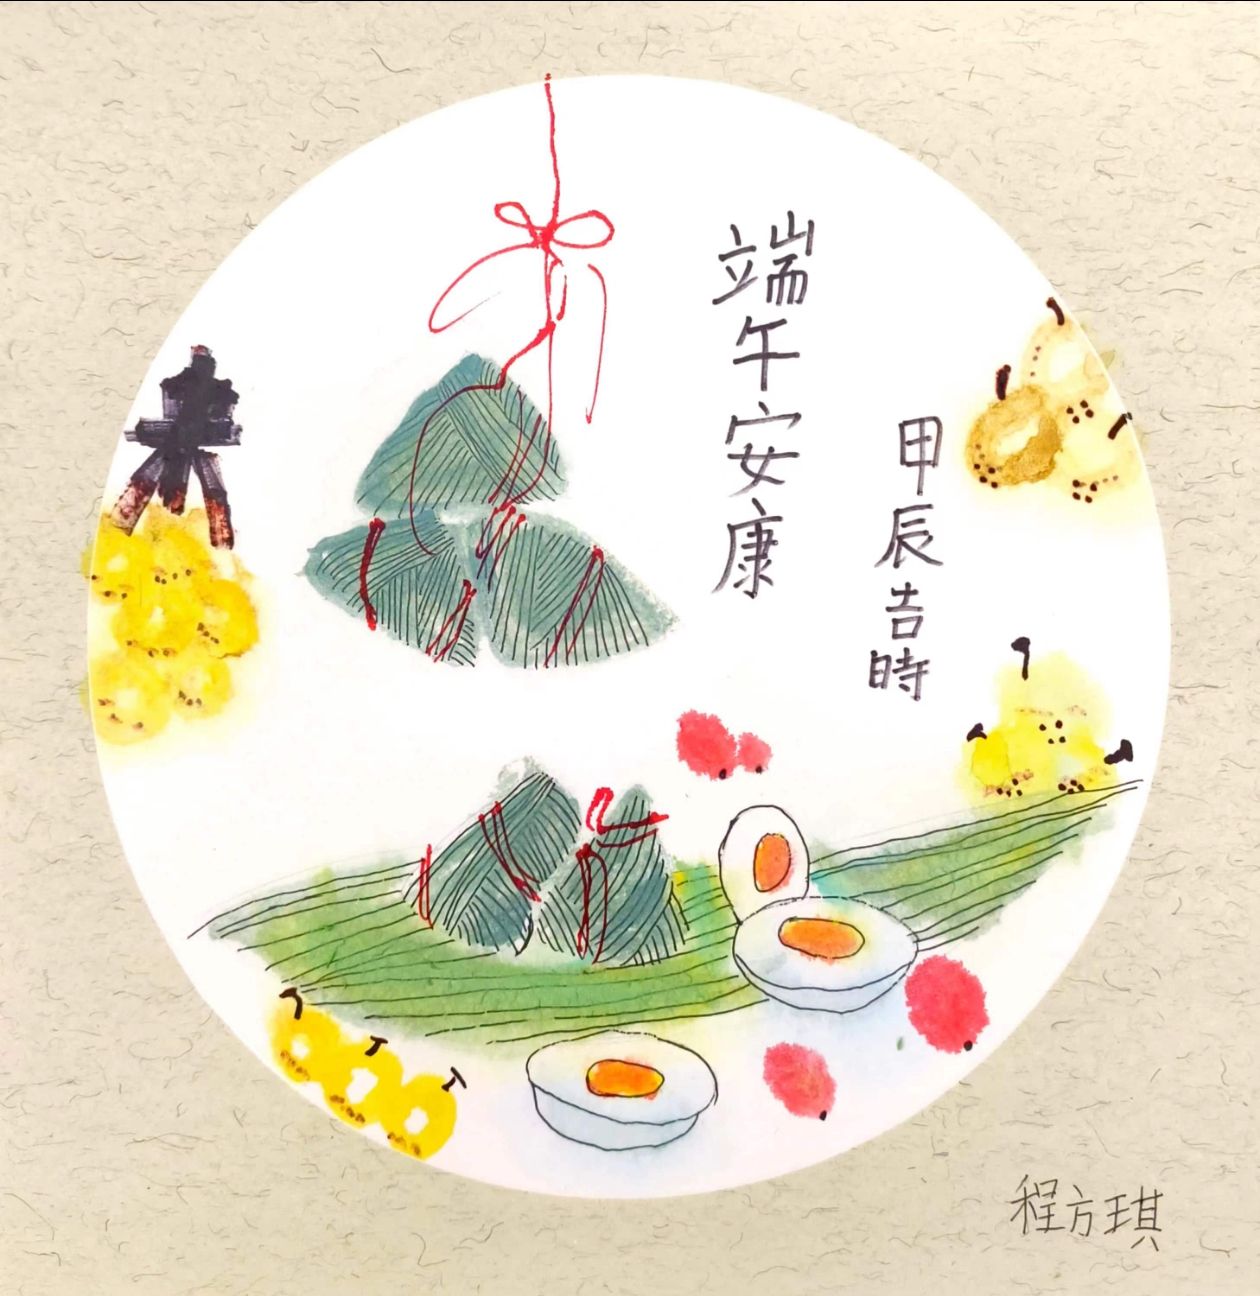 端午安康
甲辰吉時
程方琪